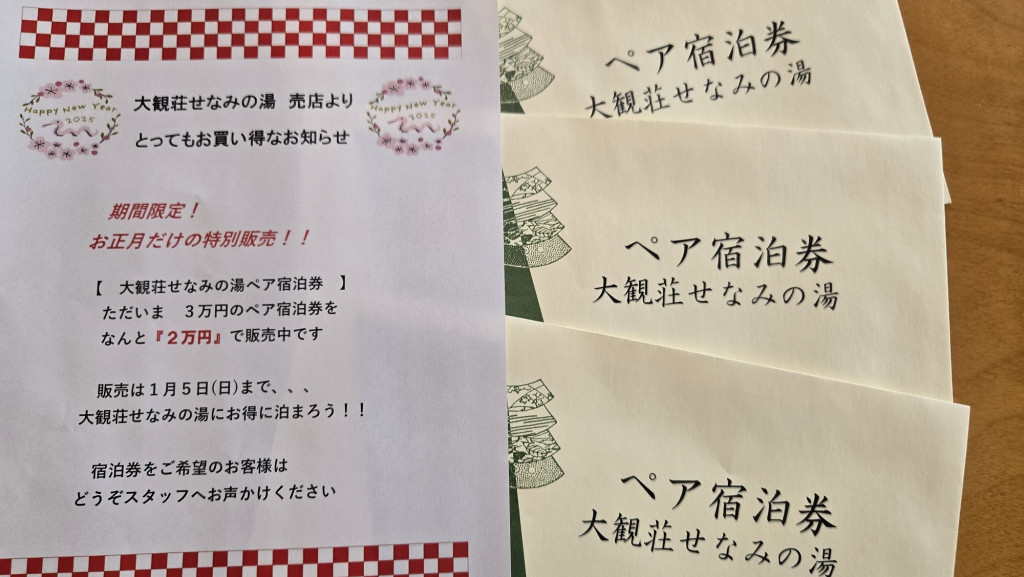 Happy New Year
2025
大観荘せなみの湯 売店より
とってもお買い得なお知らせ
Happy New Year
2025
期間限定！
お正月だけの特別販売！！
【 大観荘せなみの湯ペア宿泊券 】
ただいま ３万円のペア宿泊券を
なんと『２万円』で販売中です
販売は１月５日(日)まで、、、
大観荘せなみの湯にお得に泊まろう！！
宿泊券をご希望のお客様は
どうぞスタッフへお声かけください
ペア宿泊券
大観荘せなみの湯
ペア宿泊券
大観荘せなみの湯
ペア宿泊券
大観荘せなみの湯